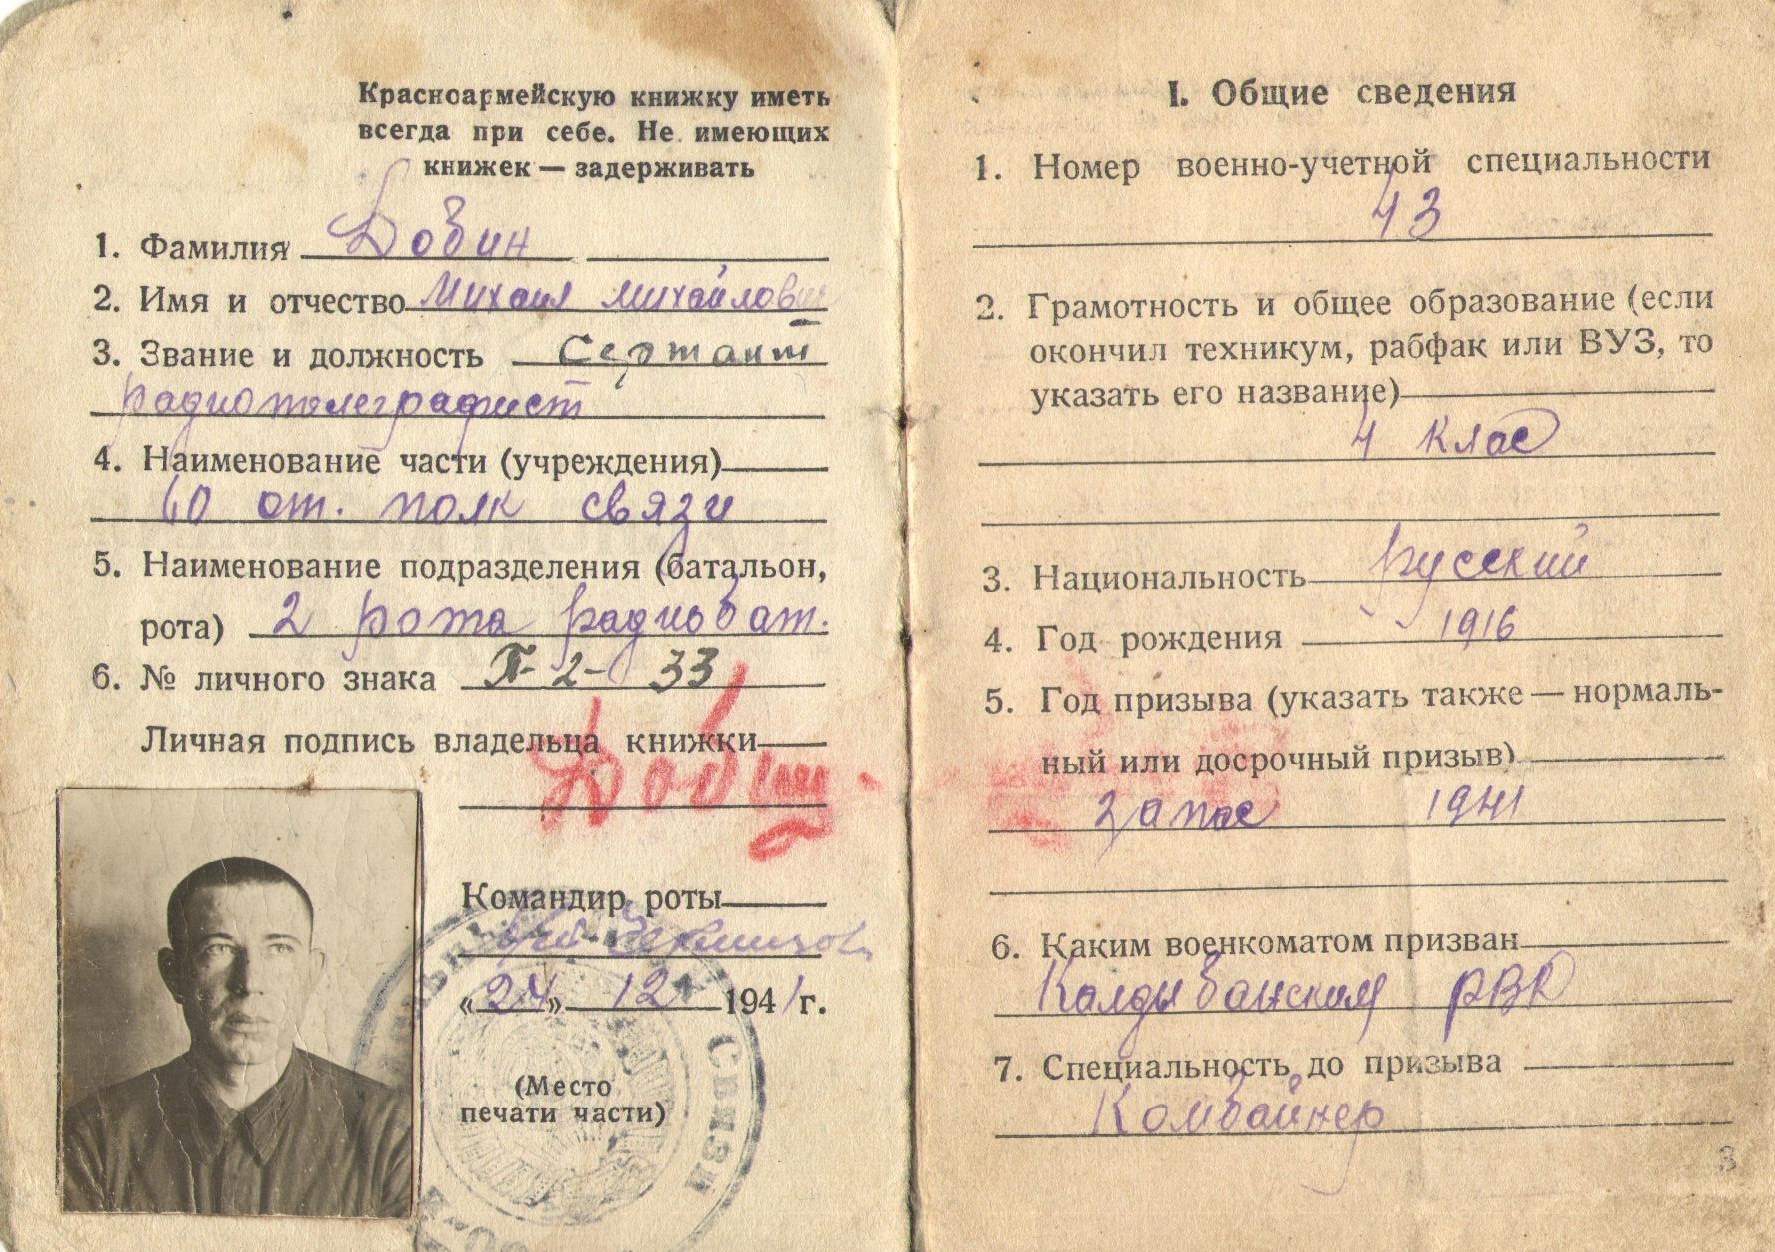 Красноармейскую книжку иметь
всегда при себе. Не имеющих
книжек — задерживать
1. Фамилия Добин
2. Имя и отчество Михаил Михайлович
3. Звание и должность Сержант
радиотелеграфист
4. Наименование части (учреждения)
60 от. полк связи
5. Наименование подразделения (батальон,
рота) 2 рота радиобат.
6. № личного знака П-2- 33
Личная подпись владельца книжки
Добин
Командир роты
«24» 12 1941 г.
(Место
печати части)
Связи
I. Общие сведения
1. Номер военно-учетной специальности
43
2. Грамотность и общее образование (если
окончил техникум, рабфак или ВУЗ, то
указать его название)
4 клас
3. Национальность русский
4. Год рождения 1916
5. Год призыва (указать также — нормаль-
ный или досрочный призыв)
запас 1941
6. Каким военкоматом призван
Калдыбанским РВК
7. Специальность до призыва
Комбайнер
3